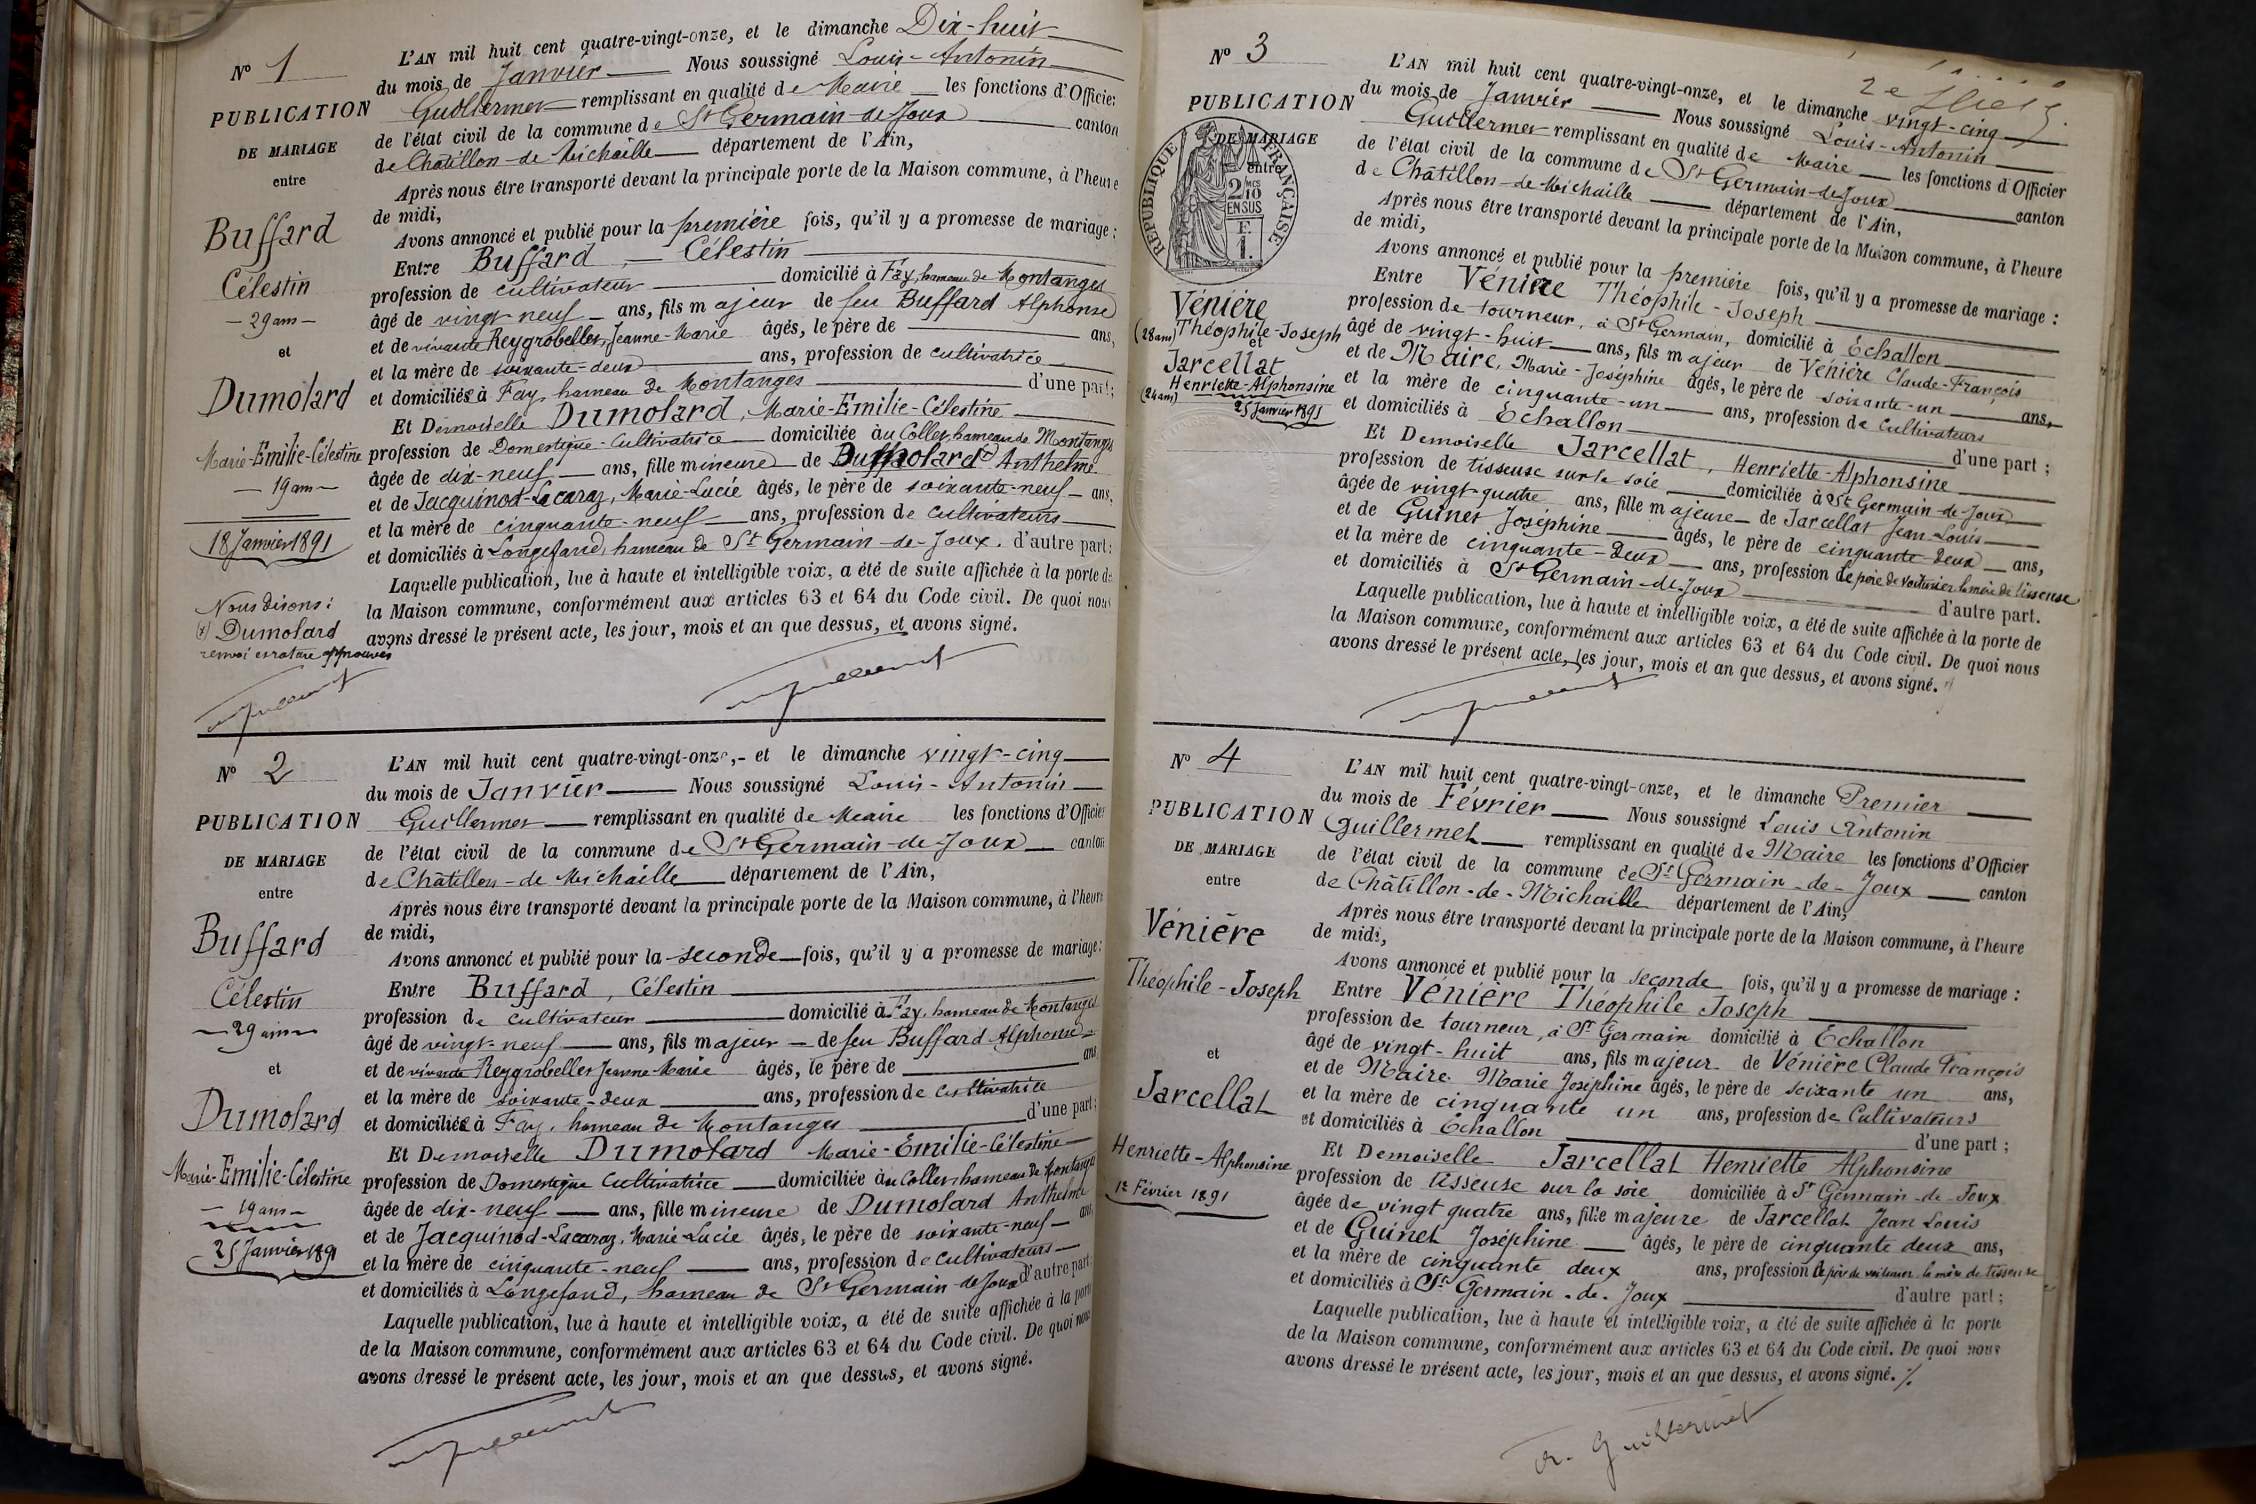 N° 1
PUBLICATION
DE MARIAGE
entre
Buffard
Célestin
— 29 ans —
et
Dumolard
Marie-Emilie-Célestine
— 19 ans —
18 Janvier 1891
Nous disons :
(x) Dumolard
renvoi et rature approuvés
L'AN mil huit cent quatre-vingt-onze, et le dimanche Dix-huit
du mois de Janvier Nous soussigné Louis-Antonin
Guillermet remplissant en qualité de Maire les fonctions d'Officier
de l'état civil de la commune de St Germain-de-Joux canton
de Châtillon-de-Michaille département de l'Ain,
Après nous être transporté devant la principale porte de la Maison commune, à l'heure
de midi,
Avons annoncé et publié pour la première fois, qu'il y a promesse de mariage :
Entre Buffard, — Célestin
profession de cultivateur domicilié à Fay, hameau de Montanges
âgé de vingt-neuf ans, fils majeur de feu Buffard Alphonse
et de vivante Reygrobellet, Jeanne-Marie âgés, le père de ans,
et la mère de soixante-deux ans, profession de cultivatrice
et domiciliés à Fay, hameau de Montanges d'une part ;
Et Demoiselle Dumolard, Marie-Emilie-Célestine
profession de Domestique-Cultivatrice domiciliée au Collet, hameau de Montanges
âgée de dix-neuf ans, fille mineure de Anthelme
et de Jacquinod-Lacaraz, Marie-Lucie âgés, le père de soixante-neuf ans,
et la mère de cinquante-neuf ans, profession de cultivateurs
et domiciliés à Longefand, hameau de St Germain-de-Joux. d'autre part ;
Laquelle publication, lue à haute et intelligible voix, a été de suite affichée à la porte de
la Maison commune, conformément aux articles 63 et 64 du Code civil. De quoi nous
avons dressé le présent acte, les jour, mois et an que dessus, et avons signé.
N° 2
PUBLICATION
DE MARIAGE
entre
Buffard
Célestin
— 29 ans —
et
Dumolard
Marie-Emilie-Célestine
— 19 ans —
25 Janvier 1891
L'AN mil huit cent quatre-vingt-onze, - et le dimanche vingt-cinq
du mois de Janvier Nous soussigné Louis-Antonin
Guillermet remplissant en qualité de Maire les fonctions d'Officier
de l'état civil de la commune de St Germain-de-Joux canton
de Châtillon-de-Michaille département de l'Ain,
Après nous être transporté devant la principale porte de la Maison commune, à l'heure
de midi,
Avons annoncé et publié pour la seconde fois, qu'il y a promesse de mariage :
Entre Buffard, Célestin
profession de cultivateur domicilié à Fay, hameau de Montanges
âgé de vingt-neuf ans, fils majeur de feu Buffard Alphonse
et de vivante Reygrobellet Jeanne-Marie âgés, le père de ans
et la mère de soixante-deux ans, profession de cultivatrice
et domiciliés à Fay, hameau de Montanges d'une part ;
Et Demoiselle Dumolard Marie-Emilie-Célestine
profession de Domestique Cultivatrice domiciliée au Collet, hameau de Montanges
âgée de dix-neuf ans, fille mineure de Dumolard Anthelme
et de Jacquinod-Lacaraz, Marie-Lucie âgés, le père de soixante-neuf ans
et la mère de cinquante-neuf ans, profession de cultivateurs
et domiciliés à Longefand, hameau de St Germain-de-Joux d'autre part ;
Laquelle publication, lue à haute et intelligible voix, a été de suite affichée à la porte
de la Maison commune, conformément aux articles 63 et 64 du Code civil. De quoi nous
avons dressé le présent acte, les jour, mois et an que dessus, et avons signé.
N° 3
PUBLICATION
DE MARIAGE
entre
RÉPUBLIQUE FRANÇAISE
2/10 EN SUS
F. 1.
Vénière
(28 ans) Théophile-Joseph
et
Jarcellat
Henriette-Alphonsine
(24 ans)
25 Janvier 1891
L'AN mil huit cent quatre-vingt-onze, et le dimanche vingt-cinq
du mois de Janvier Nous soussigné Louis-Antonin
Guillermet remplissant en qualité de Maire les fonctions d'Officier
de l'état civil de la commune de St Germain-de-Joux canton
de Châtillon-de-Michaille département de l'Ain,
Après nous être transporté devant la principale porte de la Maison commune, à l'heure
de midi,
Avons annoncé et publié pour la première fois, qu'il y a promesse de mariage :
Entre Vénière Théophile-Joseph
profession de tourneur, à St Germain, domicilié à Echallon
âgé de vingt-huit ans, fils majeur de Vénière Claude-François
et de Maire, Marie-Joséphine âgés, le père de soixante-un ans,
et la mère de cinquante-un ans, profession de cultivateurs
et domiciliés à Echallon d'une part ;
Et Demoiselle Jarcellat, Henriette-Alphonsine
profession de tisseuse sur la soie domiciliée à St Germain-de-Joux
âgée de vingt-quatre ans, fille majeure de Jarcellat Jean-Louis
et de Guinet Joséphine âgés, le père de cinquante-deux ans,
et la mère de cinquante-deux ans, profession le père de voiturier la mère de tisseuse
et domiciliés à St Germain-de-Joux d'autre part.
Laquelle publication, lue à haute et intelligible voix, a été de suite affichée à la porte de
la Maison commune, conformément aux articles 63 et 64 du Code civil. De quoi nous
avons dressé le présent acte, les jour, mois et an que dessus, et avons signé.
N° 4
PUBLICATION
DE MARIAGE
entre
Vénière
Théophile-Joseph
et
Jarcellat
Henriette-Alphonsine
1er Février 1891
L'AN mil huit cent quatre-vingt-onze, et le dimanche Premier
du mois de Février Nous soussigné Louis Antonin
Guillermet remplissant en qualité de Maire les fonctions d'Officier
de l'état civil de la commune de St Germain-de-Joux canton
de Châtillon-de-Michaille département de l'Ain,
Après nous être transporté devant la principale porte de la Maison commune, à l'heure
de midi,
Avons annoncé et publié pour la seconde fois, qu'il y a promesse de mariage :
Entre Vénière Théophile Joseph
profession de tourneur, à St Germain domicilié à Echallon
âgé de vingt-huit ans, fils majeur de Vénière Claude François
et de Maire Marie Joséphine âgés, le père de soixante un ans,
et la mère de cinquante un ans, profession de Cultivateurs
et domiciliés à Echallon d'une part ;
Et Demoiselle Jarcellat Henriette Alphonsine
profession de tisseuse sur la soie domiciliée à St Germain-de-Joux
âgée de vingt quatre ans, fille majeure de Jarcellat Jean Louis
et de Guinet Joséphine âgés, le père de cinquante deux ans,
et la mère de cinquante deux ans, profession le père de voiturier la mère de tisseuse
et domiciliés à St Germain-de-Joux d'autre part ;
Laquelle publication, lue à haute et intelligible voix, a été de suite affichée à la porte
de la Maison commune, conformément aux articles 63 et 64 du Code civil. De quoi nous
avons dressé le présent acte, les jour, mois et an que dessus, et avons signé.
A. Guillermet